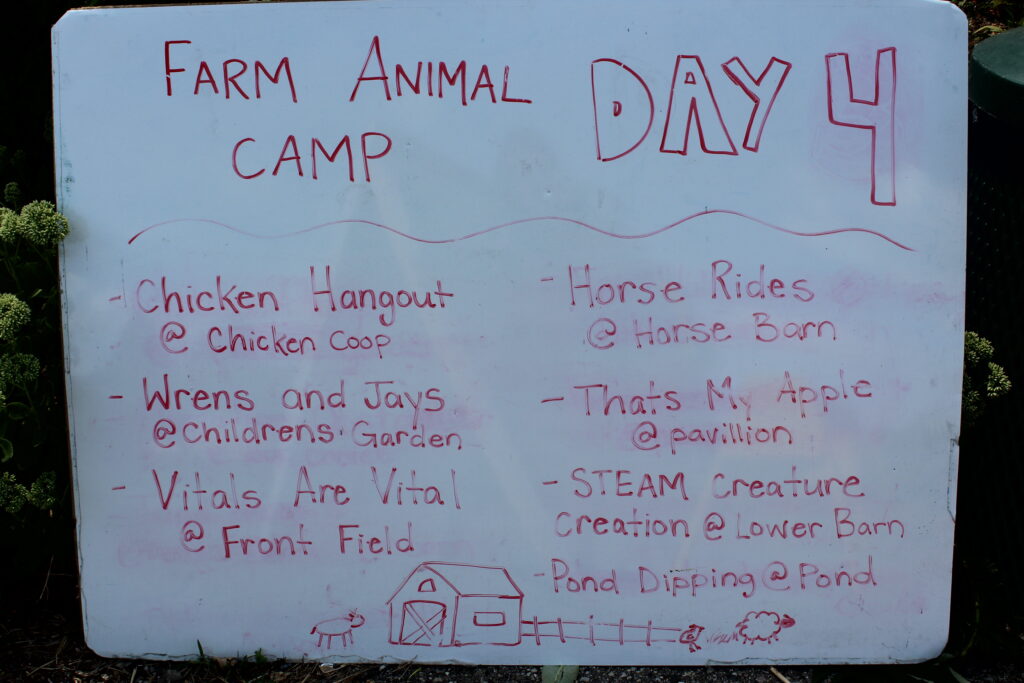 FARM ANIMAL
CAMP
DAY 4
- Chicken Hangout
@ Chicken Coop
- Wrens and Jays
@ Childrens Garden
- Vitals Are Vital
@ Front Field
- Horse Rides
@ Horse Barn
- Thats My Apple
@ pavillion
- STEAM Creature
Creation @ Lower Barn
- Pond Dipping @ Pond